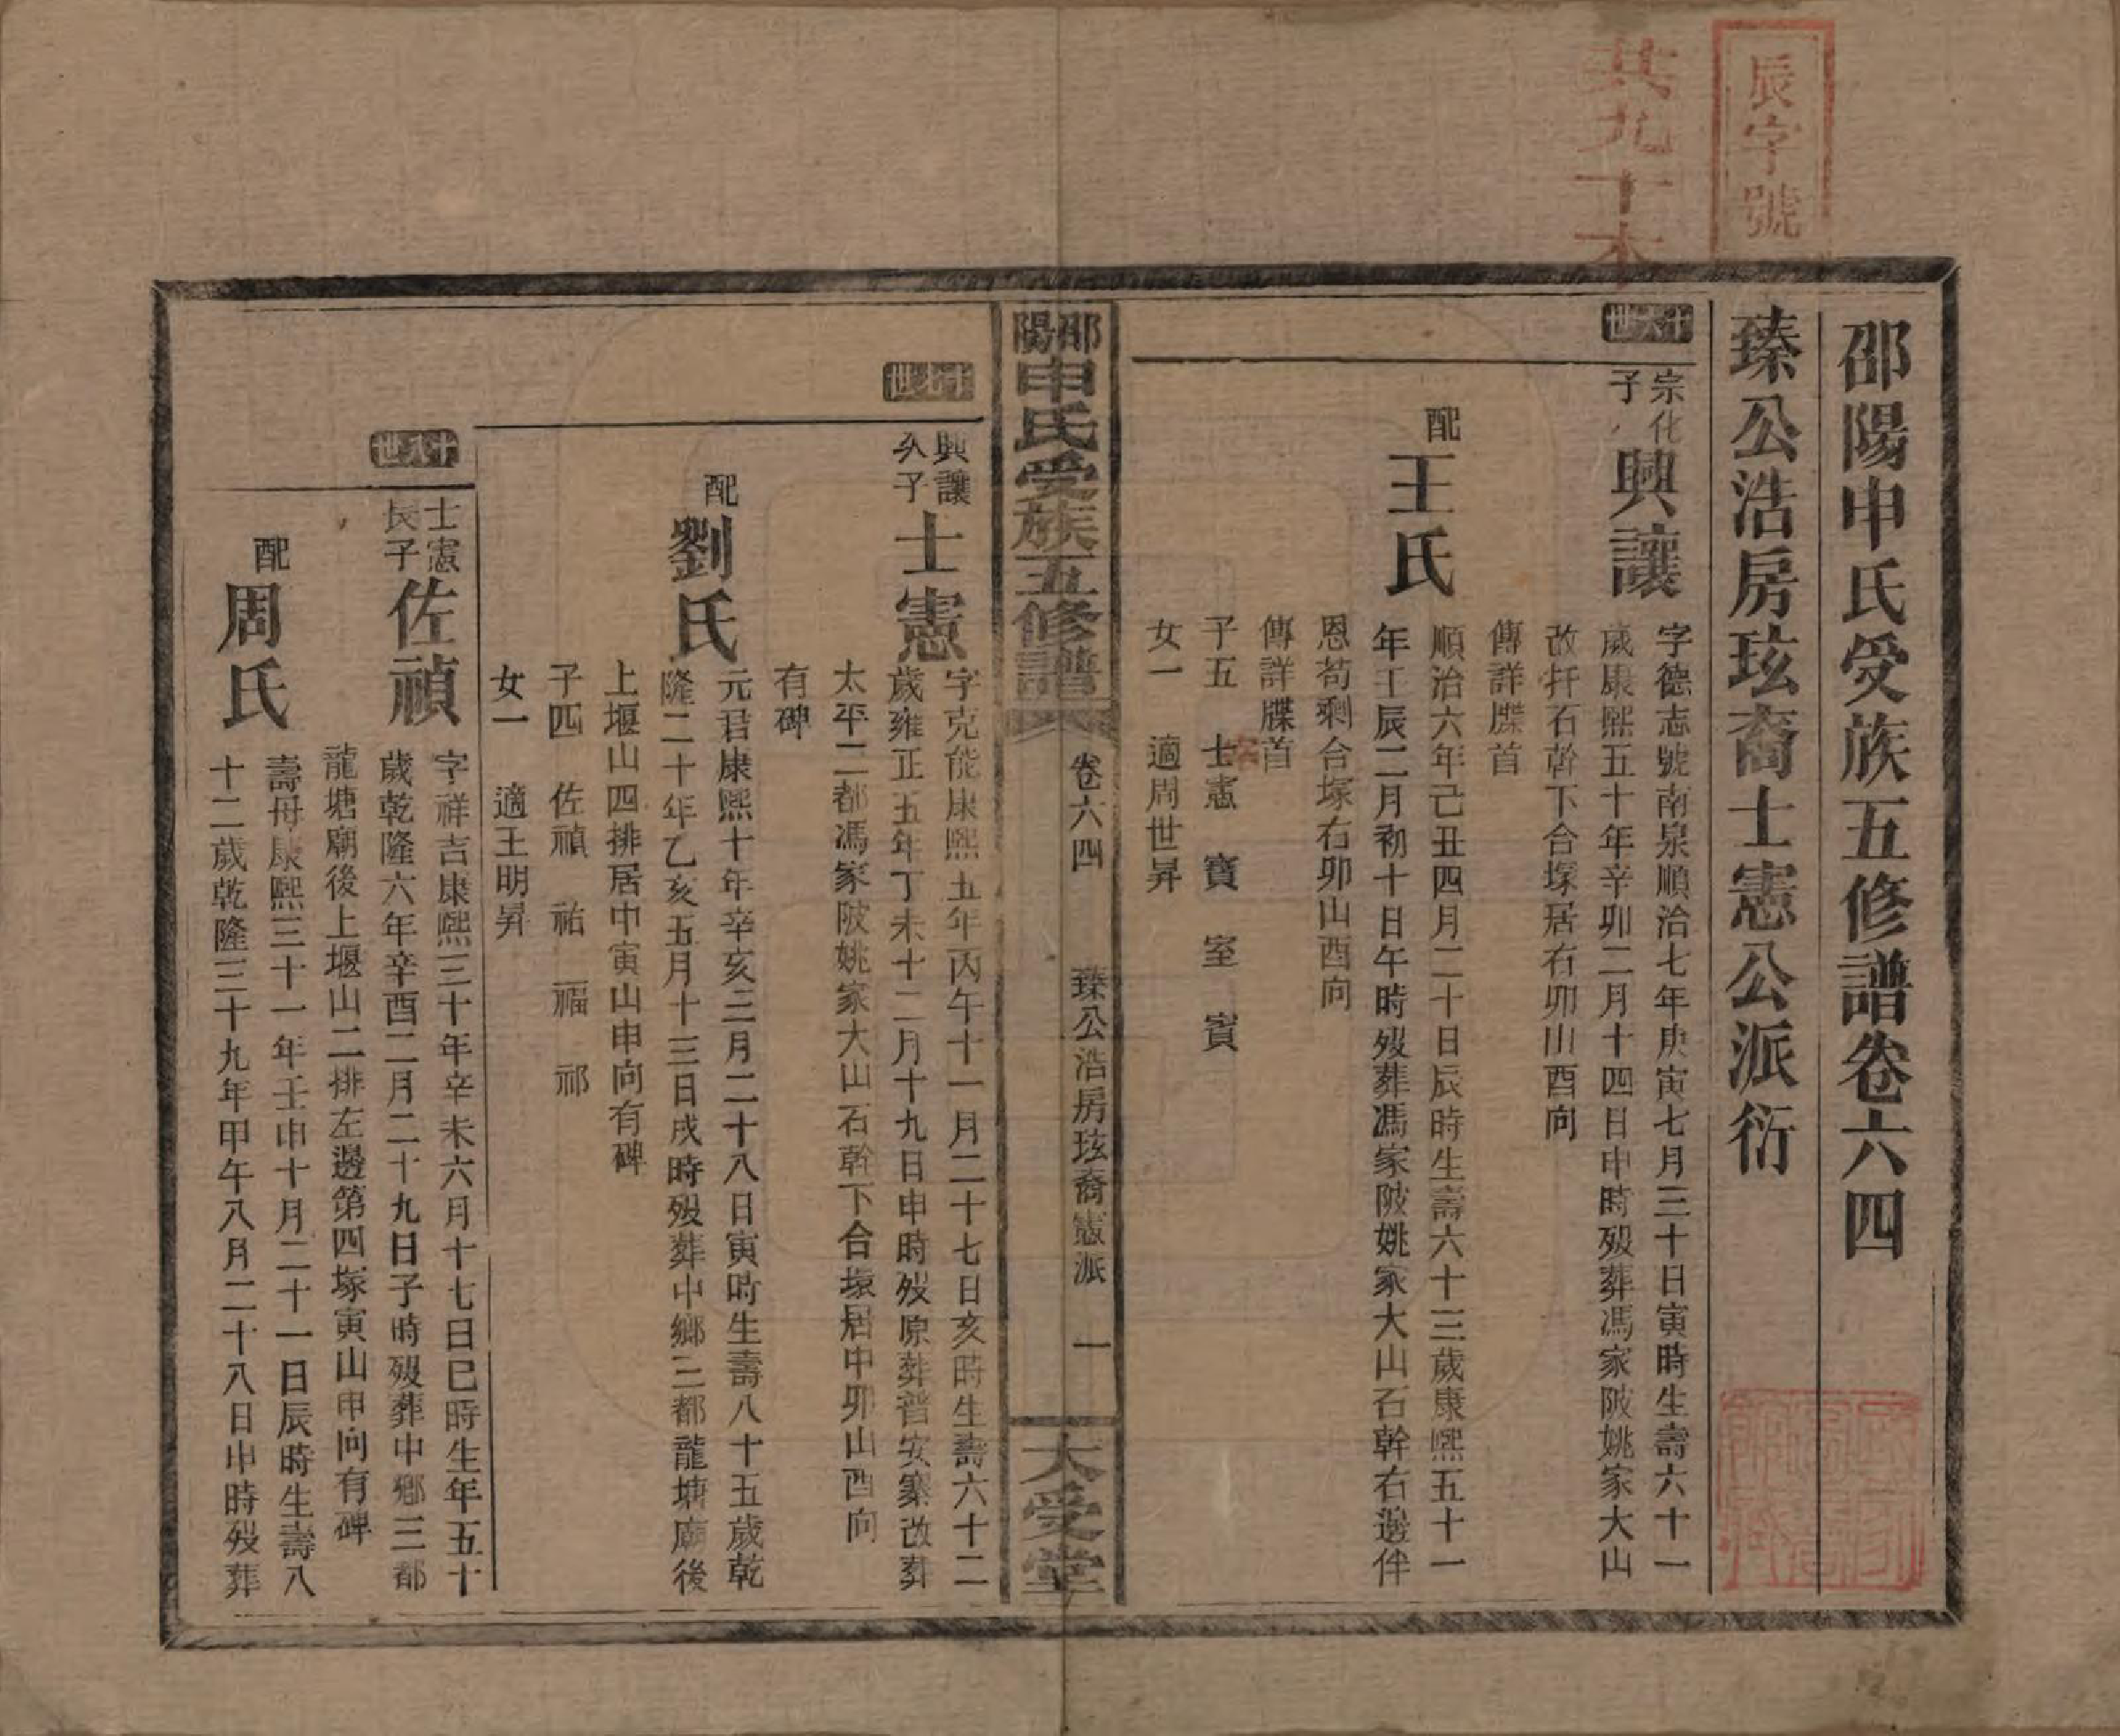 辰字號
共九十本
邵陽申氏受族五修譜卷六四
臻公浩房玹裔士憲公派衍
十六世
宗化子
興讓
字德志號南泉順治七年庚寅七月三十日寅時生壽六十一
歲康熙五十年辛卯二月十四日申時歿葬馮家陂姚家大山
改扦石幹下合塚居右卯山酉向
傳詳牒首
配
王氏
順治六年己丑四月二十日辰時生壽六十三歲康熙五十一
年壬辰二月初十日午時歿葬馮家陂姚家大山石幹右邊伴
恩苟剩合塚右卯山酉向
傳詳牒首
子五 士憲 寶 室 賓
女一 適周世昇
邵陽申氏受族五修譜
卷六四
臻公浩房玹裔憲派 一
大受堂
十七世
興讓久子
士憲
字克能康熙五年丙午十一月二十七日亥時生壽六十二
歲雍正五年丁未十二月十九日申時歿原葬普安寨改葬
太平二都馮家陂姚家大山石幹下合塚居中卯山酉向
有碑
配
劉氏
元君康熙十年辛亥三月二十八日寅時生壽八十五歲乾
隆二十年乙亥五月十三日戌時歿葬中鄉三都龍塘廟後
上堰山四排居中寅山申向有碑
子四 佐禎 祐 福 祁
女一 適王明昇
十八世
士憲長子
佐禎
字祥吉康熙三十年辛未六月十七日巳時生年五十
歲乾隆六年辛酉二月二十九日子時歿葬中鄉三都
龍塘廟後上堰山二排左邊第四塚寅山申向有碑
配
周氏
壽母康熙三十一年壬申十月二十一日辰時生壽八
十二歲乾隆三十九年甲午八月二十八日申時歿葬